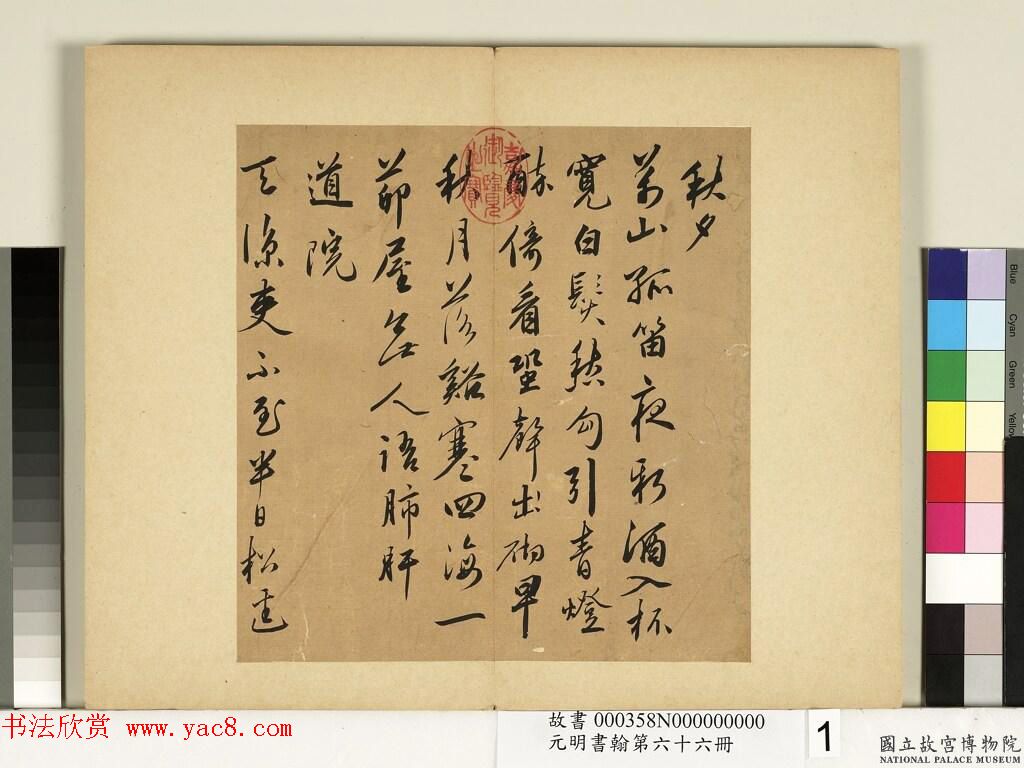 秋夕
萬山孤笛夜新酒入杯
寬白髮愁勾引青燈
醉倚看蛩聲出砌早
秋月落谿寒四海一
茆屋無人語肺肝
道院
天涼吏不至半日松
嘉慶御覽之寶
故書 000358N000000000
元明書翰第六十六冊
1
國立故宮博物院
NATIONAL PALACE MUSEUM
Blue
Cyan
Green
Yellow
书法欣赏 www.yac8.com